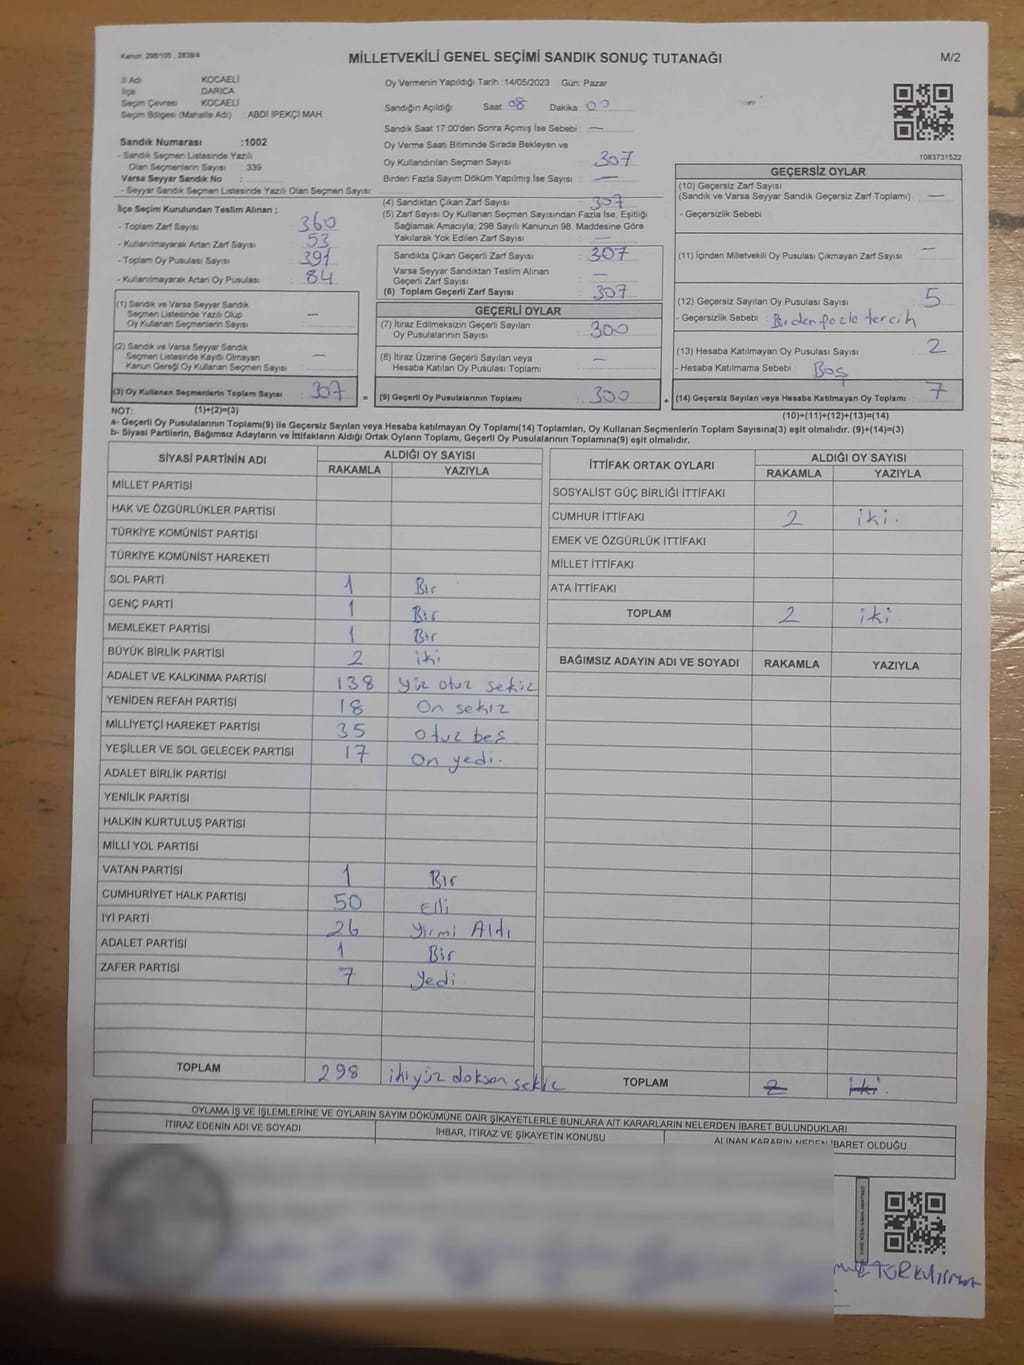 Kanun: 298/105 , 2839/4
MİLLETVEKİLİ GENEL SEÇİMİ SANDIK SONUÇ TUTANAĞI
M/2
İl Adı KOCAELİ
İlçe DARICA
Seçim Çevresi KOCAELİ
Seçim Bölgesi (Mahalle Adı) ABDİ İPEKÇİ MAH.
Sandık Numarası :1002
- Sandık Seçmen Listesinde Yazılı
Olan Seçmenlerin Sayısı : 339
Varsa Seyyar Sandık No :
- Seyyar Sandık Seçmen Listesinde Yazılı Olan Seçmen Sayısı:
İlçe Seçim Kurulundan Teslim Alınan ;
- Toplam Zarf Sayısı : 360
- Kullanılmayarak Artan Zarf Sayısı : 53
- Toplam Oy Pusulası Sayısı : 391
- Kullanılmayarak Artan Oy Pusulası : 84
(1) Sandık ve Varsa Seyyar Sandık
Seçmen Listesinde Yazılı Olup
Oy Kullanan Seçmenlerin Sayısı : —
(2) Sandık ve Varsa Seyyar Sandık
Seçmen Listesinde Kayıtlı Olmayan
Kanun Gereği Oy Kullanan Seçmen Sayısı : —
(3) Oy Kullanan Seçmenlerin Toplam Sayısı : 307
Oy Vermenin Yapıldığı Tarih :14/05/2023 Gün: Pazar
Sandığın Açıldığı Saat: 08 Dakika: 00
Sandık Saat 17:00'den Sonra Açımış İse Sebebi : —
Oy Verme Saati Bitiminde Sırada Bekleyen ve
Oy Kullandırılan Seçmen Sayısı : 307
Birden Fazla Sayım Döküm Yapılmış İse Sayısı : —
(4) Sandıktan Çıkan Zarf Sayısı : 307
(5) Zarf Sayısı Oy Kullanan Seçmen Sayısından Fazla İse, Eşitliği
Sağlamak Amacıyla, 298 Sayılı Kanunun 98. Maddesine Göre
Yakılarak Yok Edilen Zarf Sayısı : —
Sandıkta Çıkan Geçerli Zarf Sayısı : 307
Varsa Seyyar Sandıktan Teslim Alınan
Geçerli Zarf Sayısı : —
(6) Toplam Geçerli Zarf Sayısı : 307
GEÇERLİ OYLAR
(7) İtiraz Edilmeksizin Geçerli Sayılan
Oy Pusulalarının Sayısı : 300
(8) İtiraz Üzerine Geçerli Sayılan veya
Hesaba Katılan Oy Pusulası Toplamı : —
= (9) Geçerli Oy Pusulalarının Toplamı : 300 +
1083731522
GEÇERSİZ OYLAR
(10) Geçersiz Zarf Sayısı
(Sandık ve Varsa Seyyar Sandık Geçersiz Zarf Toplamı) : —
- Geçersizlik Sebebi :
(11) İçinden Milletvekili Oy Pusulası Çıkmayan Zarf Sayısı : —
(12) Geçersiz Sayılan Oy Pusulası Sayısı : 5
- Geçersizlik Sebebi : Birden fazla tercih
(13) Hesaba Katılmayan Oy Pusulası Sayısı : 2
- Hesaba Katılmama Sebebi : Boş
(14) Geçersiz Sayılan veya Hesaba Katılmayan Oy Toplamı : 7
NOT: (1)+(2)=(3)
(10)+(11)+(12)+(13)=(14)
a- Geçerli Oy Pusulalarının Toplamı(9) ile Geçersiz Sayılan veya Hesaba katılmayan Oy Toplamı(14) Toplamları, Oy Kullanan Seçmenlerin Toplam Sayısına(3) eşit olmalıdır. (9)+(14)=(3)
b- Siyasi Partilerin, Bağımsız Adayların ve İttifakların Aldığı Ortak Oyların Toplamı, Geçerli Oy Pusulalarının Toplamına(9) eşit olmalıdır.
SİYASİ PARTİNİN ADI ALDIĞI OY SAYISI
RAKAMLA YAZIYLA
MİLLET PARTİSİ
HAK VE ÖZGÜRLÜKLER PARTİSİ
TÜRKİYE KOMÜNİST PARTİSİ
TÜRKİYE KOMÜNİST HAREKETİ
SOL PARTİ 1 Bir
GENÇ PARTİ 1 Bir
MEMLEKET PARTİSİ 1 Bir
BÜYÜK BİRLİK PARTİSİ 2 iki
ADALET VE KALKINMA PARTİSİ 138 yüz otuz sekiz
YENİDEN REFAH PARTİSİ 18 On sekiz
MİLLİYETÇİ HAREKET PARTİSİ 35 otuz beş
YEŞİLLER VE SOL GELECEK PARTİSİ 17 On yedi.
ADALET BİRLİK PARTİSİ
YENİLİK PARTİSİ
HALKIN KURTULUŞ PARTİSİ
MİLLİ YOL PARTİSİ
VATAN PARTİSİ 1 Bir
CUMHURİYET HALK PARTİSİ 50 elli
İYİ PARTİ 26 yirmi Altı
ADALET PARTİSİ 1 Bir
ZAFER PARTİSİ 7 yedi
TOPLAM 298 ikiyüz doksan sekiz
İTTİFAK ORTAK OYLARI ALDIĞI OY SAYISI
RAKAMLA YAZIYLA
SOSYALİST GÜÇ BİRLİĞİ İTTİFAKI
CUMHUR İTTİFAKI 2 iki.
EMEK VE ÖZGÜRLÜK İTTİFAKI
MİLLET İTTİFAKI
ATA İTTİFAKI
TOPLAM 2 iki
BAĞIMSIZ ADAYIN ADI VE SOYADI RAKAMLA YAZIYLA
TOPLAM 2 iki.
OYLAMA İŞ VE İŞLEMLERİNE VE OYLARIN SAYIM DÖKÜMÜNE DAİR ŞİKAYETLERLE BUNLARA AİT KARARLARIN NELERDEN İBARET BULUNDUKLARI
İTİRAZ EDENİN ADI VE SOYADI İHBAR, İTİRAZ VE ŞİKAYETİN KONUSU ALINAN KARARIN NEDEN İBARET OLDUĞU